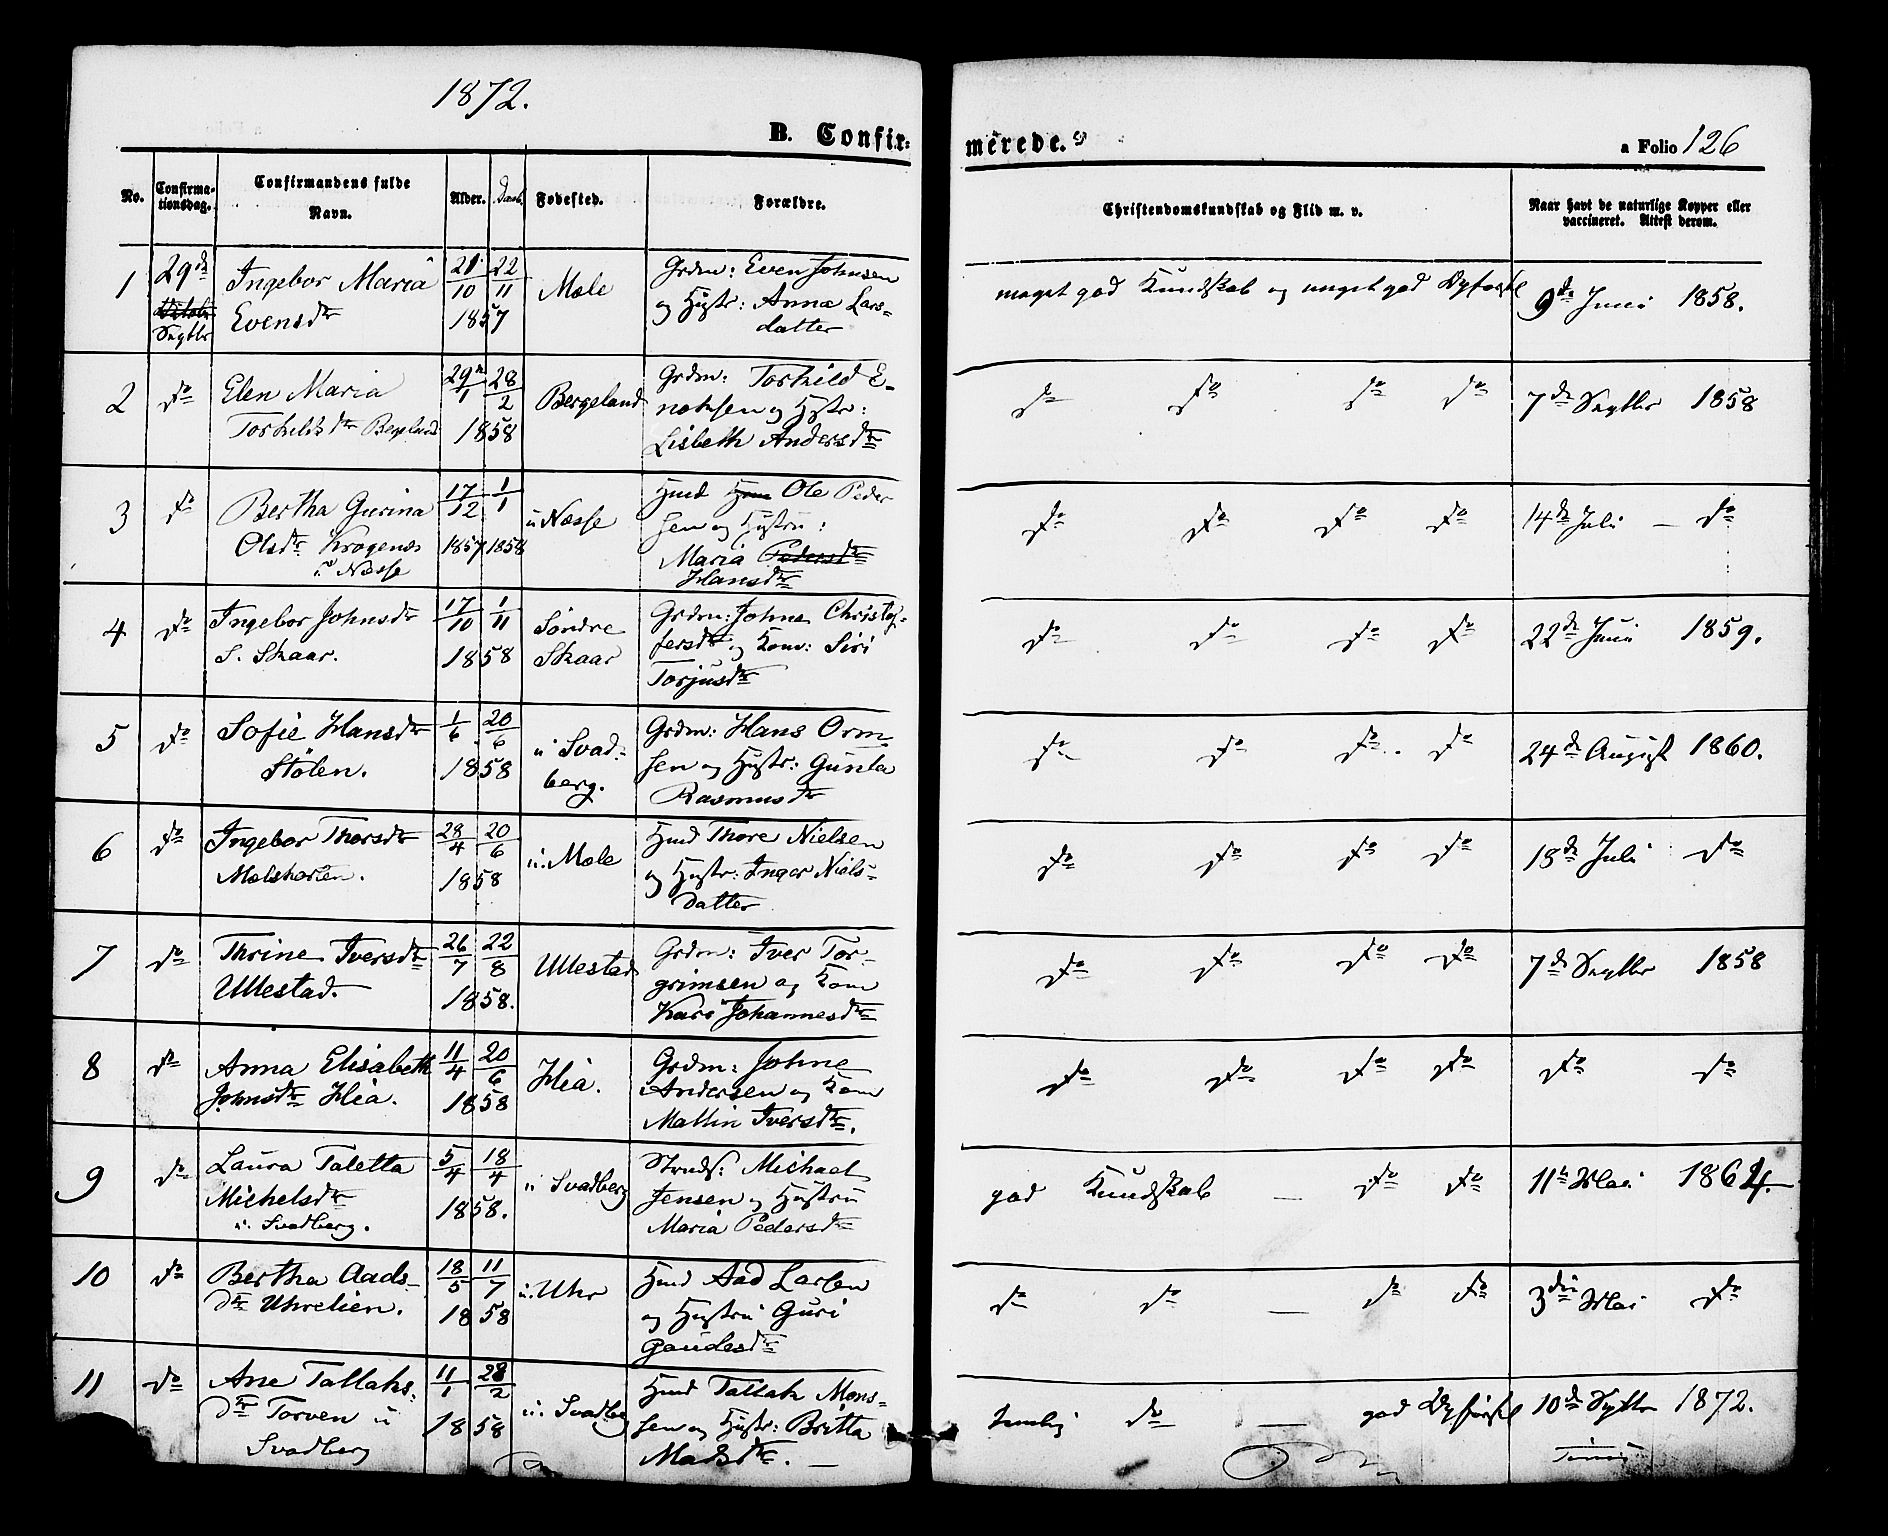 1872.
B. Confir-
merede.
a Folio 126
No.
Confirma-
tionsdag.
Confirmandens fulde
Navn.
Alder.
Daab.
Fødested.
Forældre.
Christendomskundskab og Flid m. v.
Naar havt de naturlige Kopper eller
vaccineret. Attest derom.
1
29de
Septbr
Ingebor Maria
Evensdtr
21/10 22/11
1857
Mæle
Grdm: Even Johnsen
og Hustr: Anna Lars-
datter
meget god Kundskab og meget god Opførsel
9de Juni 1858.
2
do
Elen Maria
Torkildsdtr Bergeland
29/1 28/2
1858
Bergeland
Grdm: Torkild E-
noksen og Hstr:
Lisbeth Andersdtr
do do do do
7de Septbr 1858
3
do
Bertha Gurina
Olsdtr Krogenæs
u Næsse
17/12 1/1
1857 1858
u Næsse
Hmd Ole Peder
sen og Hustru:
Maria Pedersdtr
Hansdtr
do do do do
14de Juli — do
4
do
Ingebor Johnsdtr
S. Skaar.
17/10 1/11
1858
Søndre
Skaar
Grdm: Johne Christof-
fersdtr og Kone: Siri
Torjusdtr
do do do do
22de Juni 1859.
5
do
Sofie Hansdtr
Stølen.
1/6 20/6
1858
u Svad-
berg.
Grdm: Hans Orm
sen og Hustr: Gunla
Rasmusdtr
do do do do
24de August 1860.
6
do
Ingebor Thorsdtr
Mæleskarien.
28/4 20/6
1858
u: Mæle
Hmd Thore Nielsen
og Hustr: Inger Niels-
datter
do do do do
18de Juli do
7
do
Thrine Iversdtr
Ullestad.
26/7 22/8
1858.
Ullestad
Grdm: Iver Tor-
grimsen og Kone
Kari Johannesdtr
do do do do
7de Septbr 1858
8
do
Anna Elisabeth
Johnsdtr Hia.
11/4 20/6
1858
Hia.
Grdm: Johne
Andersen og Kone
Mallin Iversdtr.
do do do do
do do
9
do
Laura Taletta
Michelsdtr
u: Svadberg.
5/4 18/4
1858.
u Svadberg
Strnds: Michael
Jensen og Hustru
Maria Pedersdtr
god Kundskab — do do
11te Mai 1864.
10
do
Bertha Aads-
dtr Uhrelien.
18/5 11/7
1858
u: Uhr
Hmd Aad Larsen
og Hustru Guri
Gaudesdtr
do do — do do
3die Mai do
11
do
Ane Tallaks-
dtr Torven u
Svadberg
11/1 28/2
1858
u: Svadberg
Hmd Tallak Mons-
sen og Hustr: Britta
Madsdtr. —
temlig do — god Opførsel
10de Septbr 1872.